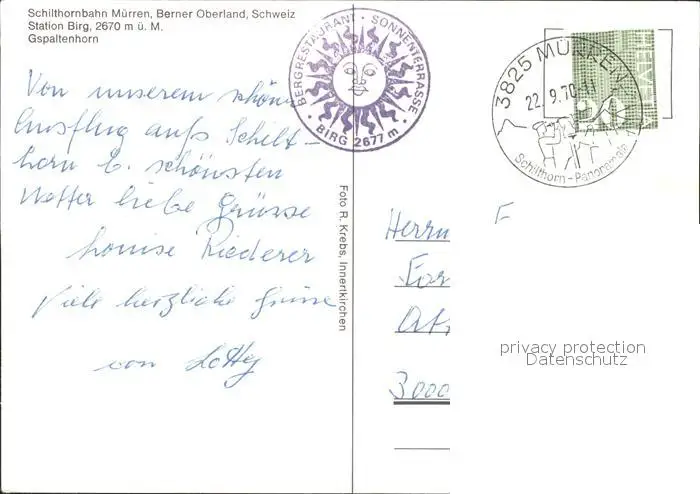 Schilthornbahn Mürren, Berner Oberland, Schweiz
Station Birg, 2670 m ü. M.
Gspaltenhorn
Von unserem schönen
Ausflug aufs Schilt-
horn b. schönsten
Wetter liebe Grüsse
Louise Riederer
Viele herzliche Grüsse
von Lotty
BERGRESTAURANT · SONNENTERRASSE
· BIRG 2677 m ·
Foto R. Krebs, Innertkirchen
3825 MÜRREN
22. 9. 70-11
Schilthorn-Panorama
HELVETIA
Herrn
F
3000
privacy protection
Datenschutz